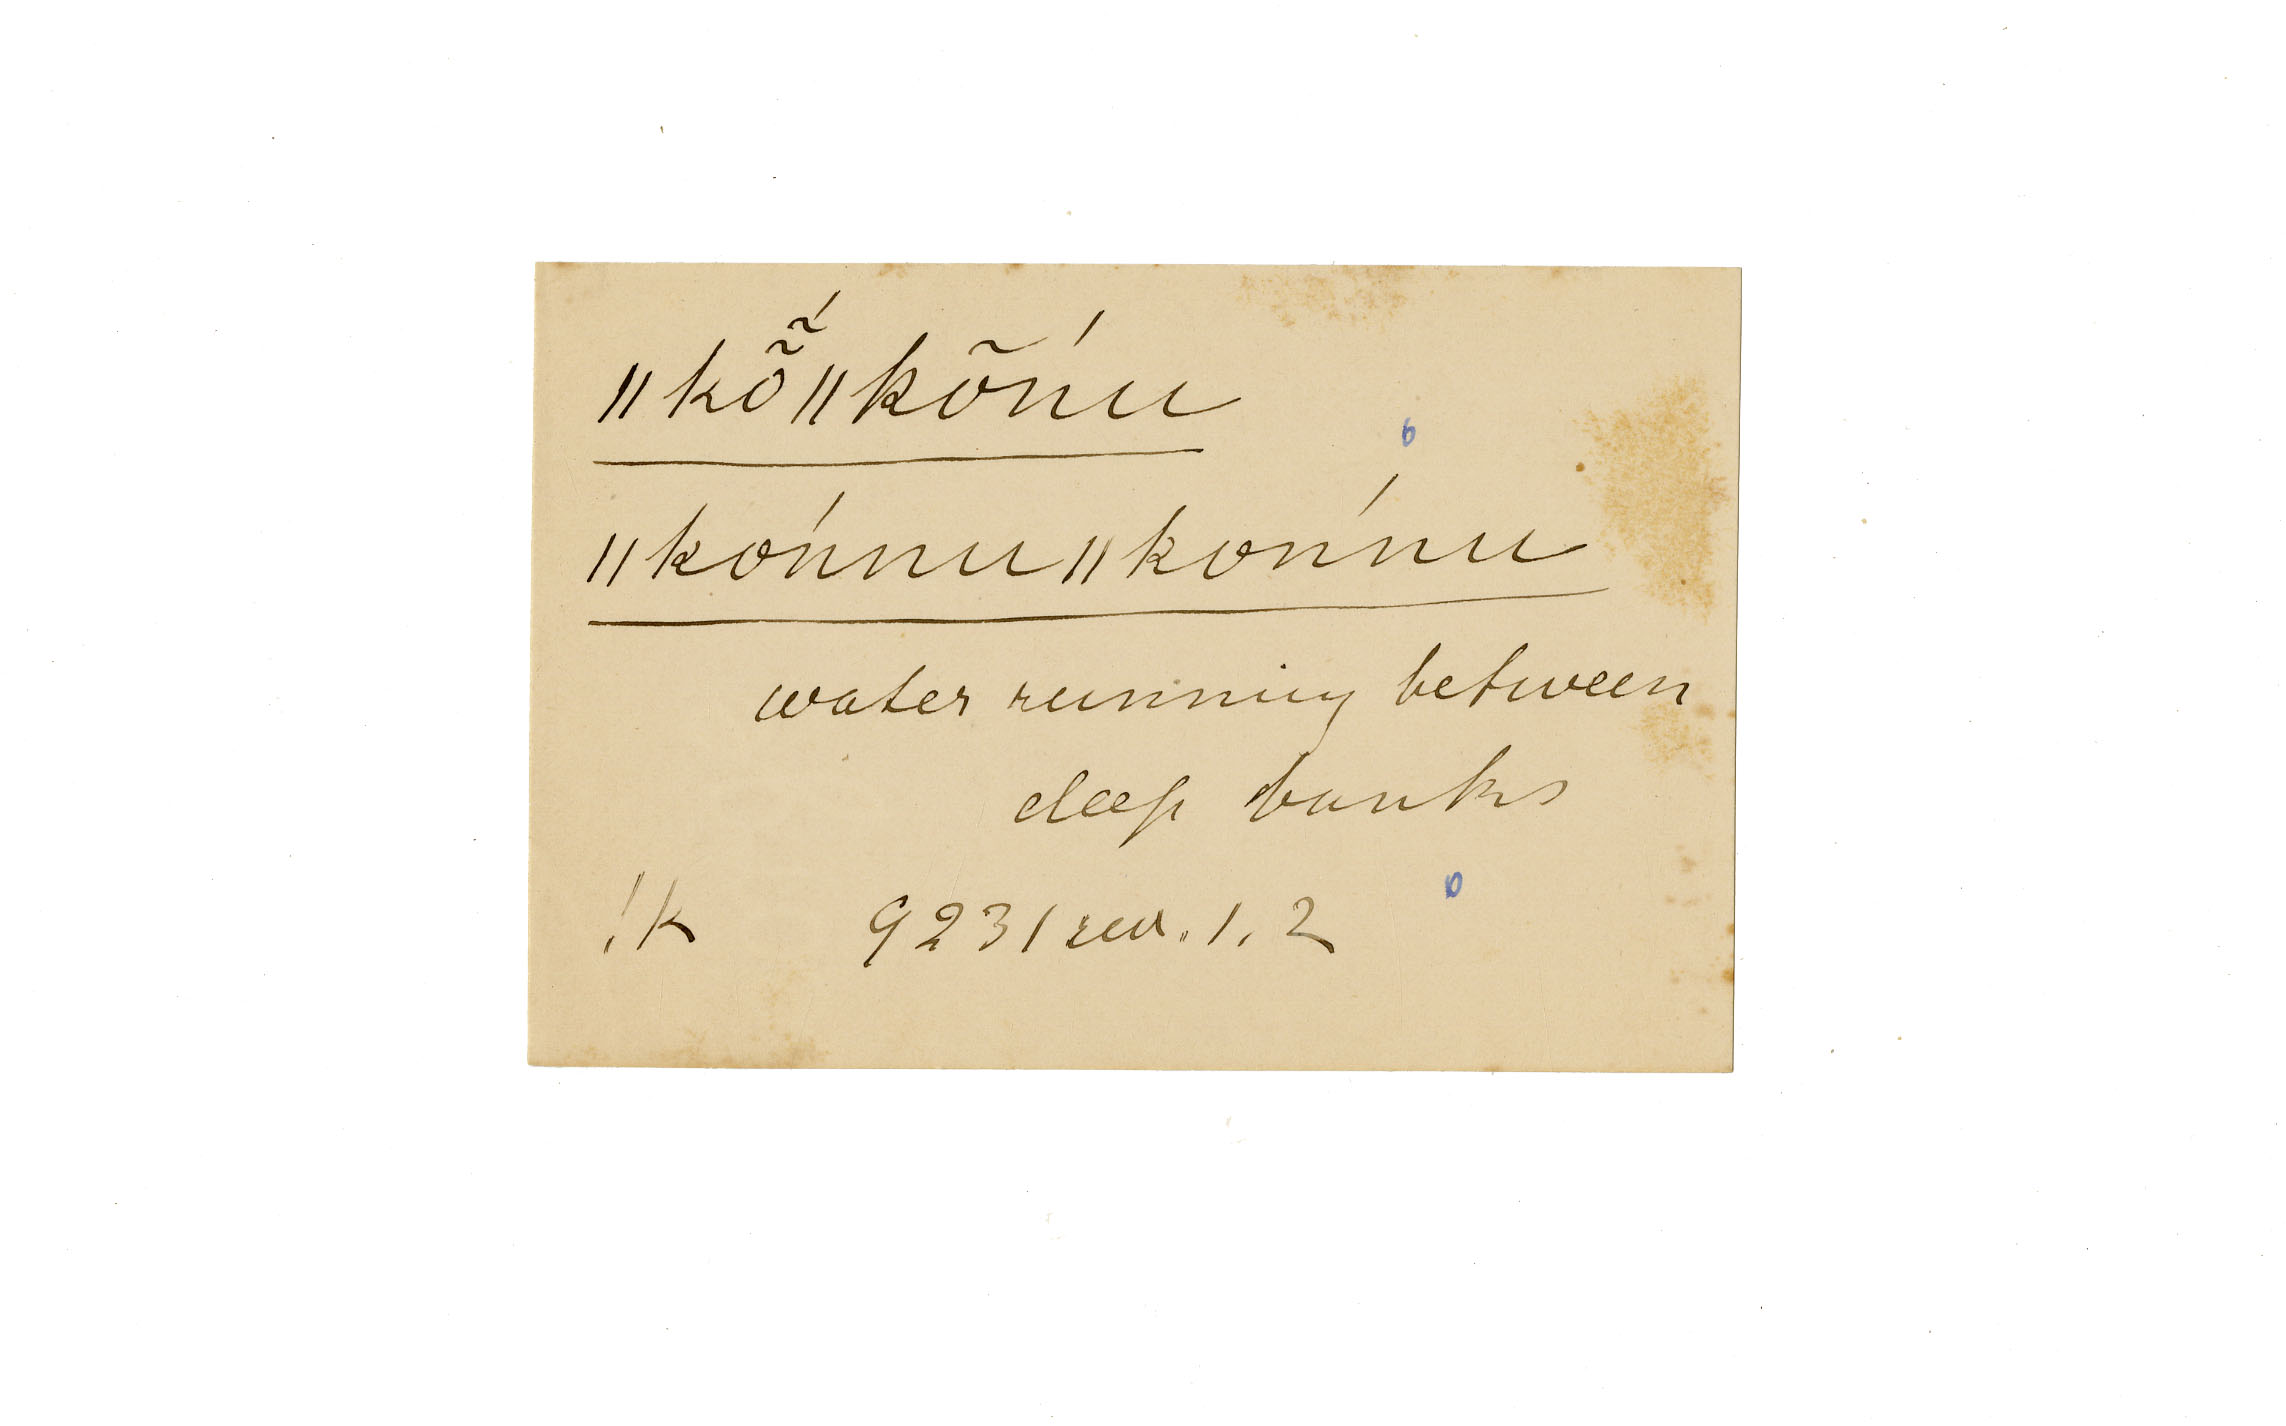 ǁkõ̃́ǁkõńu
ǁkońnuǁkońnu
water running between
deep banks
!k 9231 rev. 1, 2